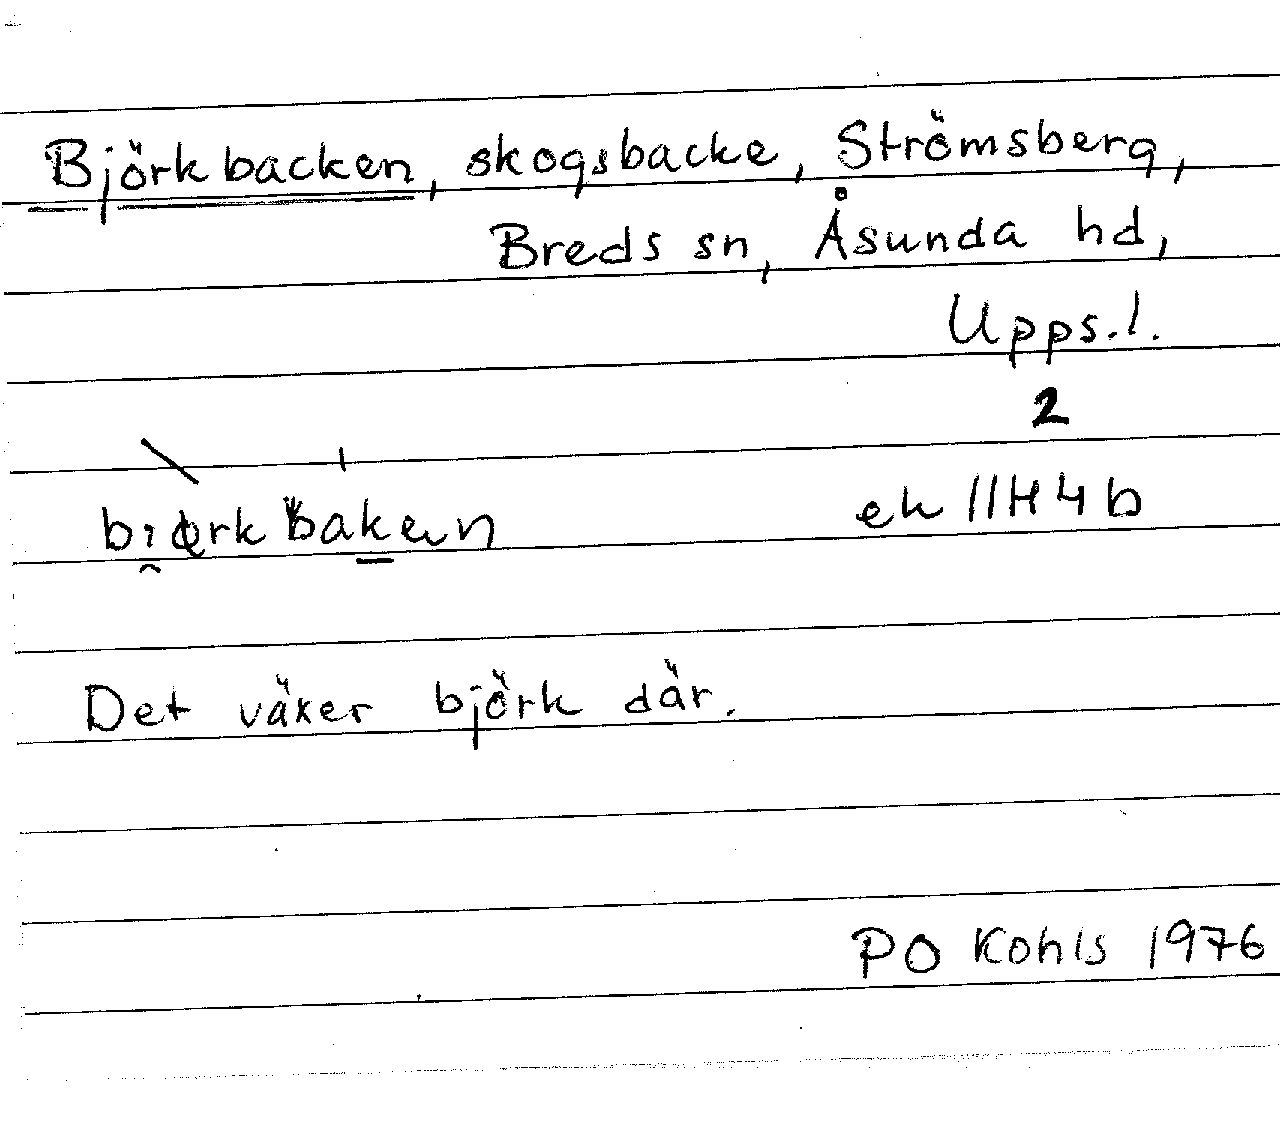 Björkbacken, skogsbacke, Strömsberg,
Breds sn, Åsunda hd,
Upps.l.
2
ek 11H4b
Det väker björk där.
PO Kohls 1976